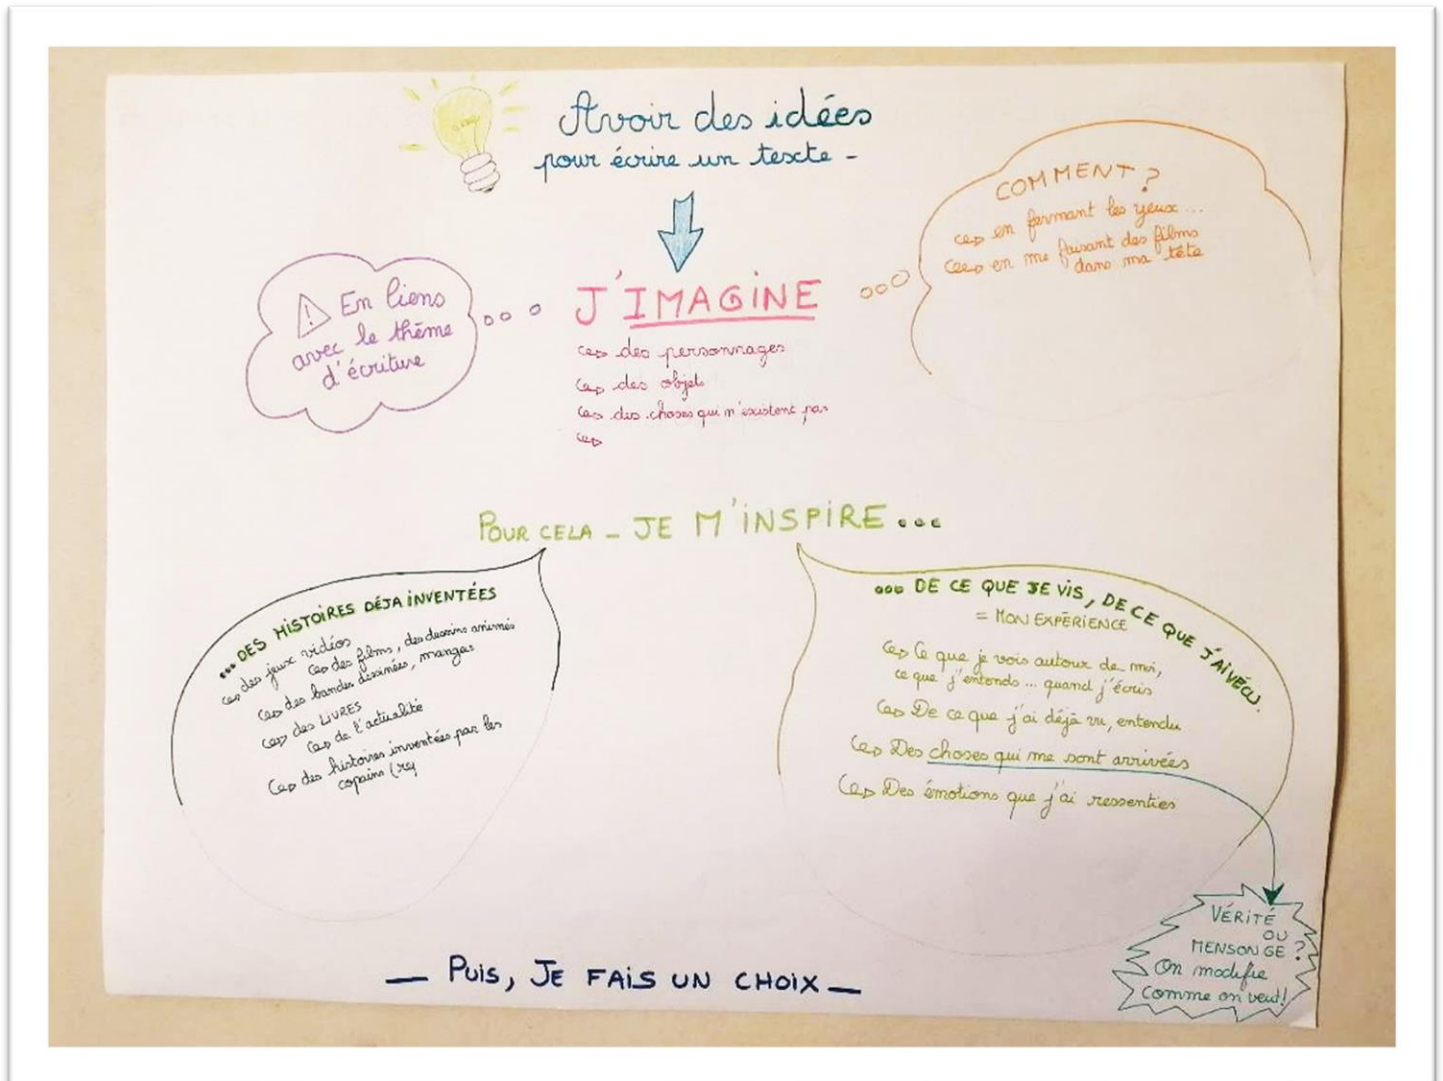 Avoir des idées
pour écrire un texte -
COMMENT ?
en fermant les yeux ...
en me faisant des films
dans ma tête
En liens
avec le thème
d'écriture
J'IMAGINE
des personnages
des objets
des choses qui n'existent pas
POUR CELA - JE M'INSPIRE ...
... DES HISTOIRES DÉJA INVENTÉES
des jeux vidéos
des films, des dessins animés
des bandes dessinées, mangas
des LIVRES
de l'actualité
des histoires inventées par les
copains (rey
... DE CE QUE JE VIS, DE CE QUE J'AI VÉCU.
= MON EXPÉRIENCE
Ce que je vois autour de moi,
ce que j'entends ... quand j'écris
De ce que j'ai déjà vu, entendu
Des choses qui me sont arrivées
Des émotions que j'ai ressenties
VÉRITÉ
OU
MENSONGE ?
On modifie
comme on veut!
— PUIS, JE FAIS UN CHOIX —